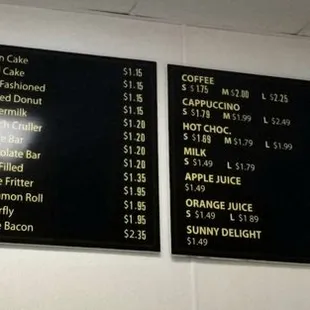 n Cake $1.15
Cake $1.15
Fashioned $1.15
ed Donut $1.15
ermilk $1.15
ch Cruller $1.20
e Bar $1.20
olate Bar $1.20
Filled $1.20
e Fritter $1.35
mon Roll $1.95
rfly $1.95
e Bacon $2.35
COFFEE
S $1.75 M $2.00 L $2.25
CAPPUCCINO
S $1.79 M $1.99 L $2.49
HOT CHOC.
S $1.69 M $1.79 L $1.99
MILK
S $1.49 L $1.79
APPLE JUICE
$1.49
ORANGE JUICE
S $1.49 L $1.89
SUNNY DELIGHT
$1.49